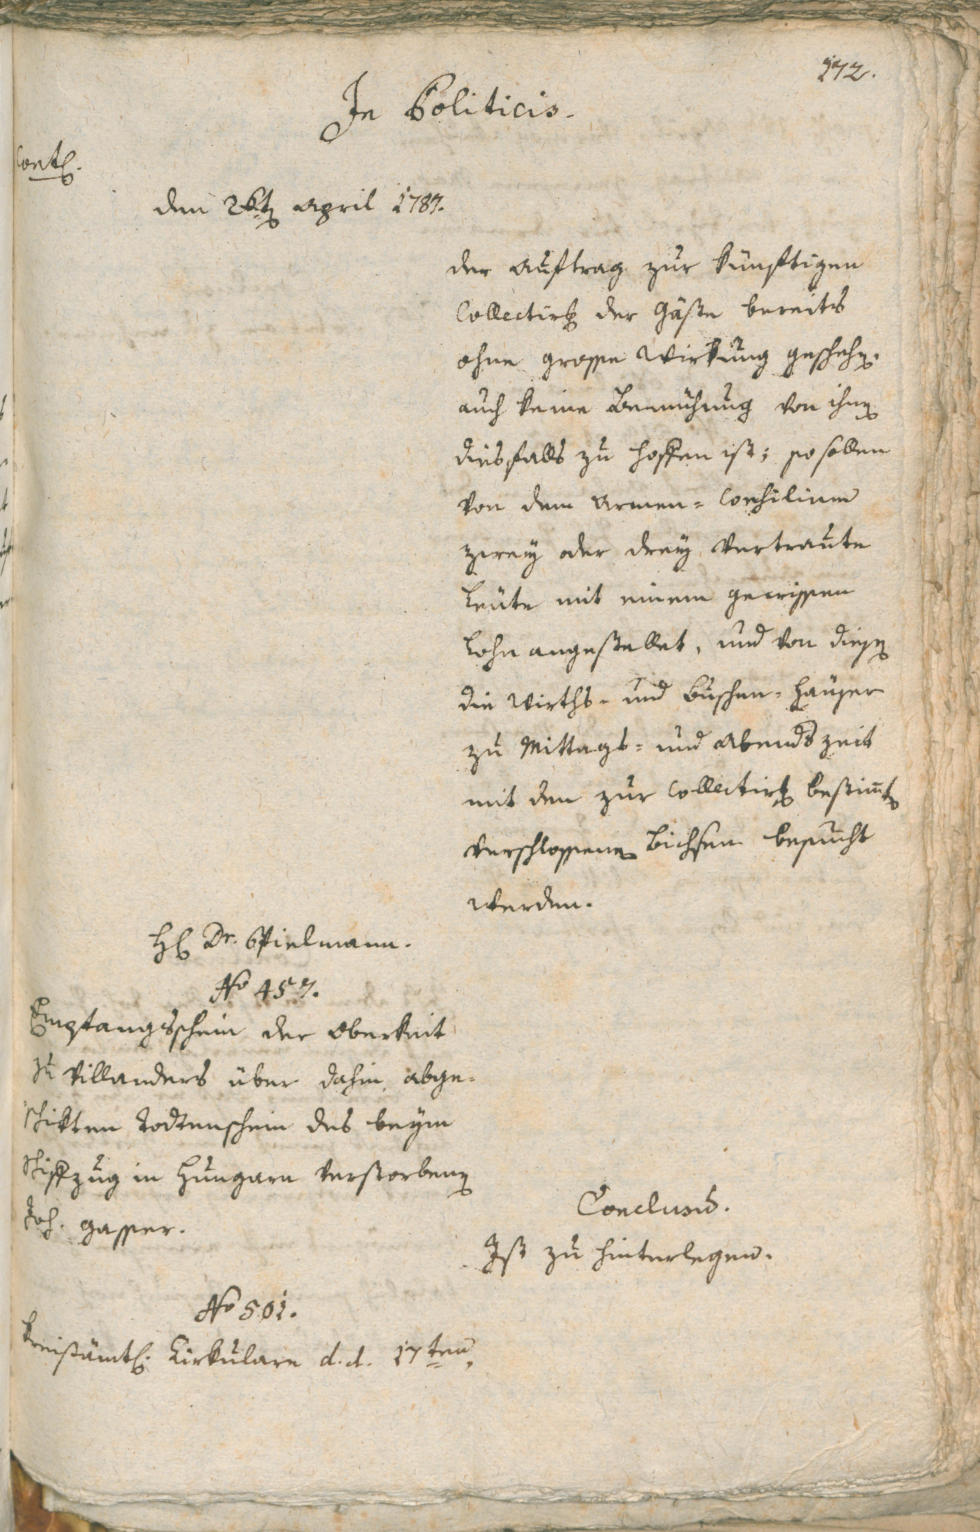 172.
In Politicis.
Cont.
den 26t april 1787.
der Auftrag zur künftigen
Collectirg der Gäste bereits
ohne grosse Wirkung geschehen.
auch keine Bemühung von ihnen
diesfalls zu hoffen ist; so sollen
von dem Armen-Consilium
zwey oder drey vertraute
Leute mit einem gewissen
Lohn angestellet, und von diesen
die Wirths- und Buschen-Häuser
zu Mittags- und Abends zeit
mit den zur Collectirg bestimten
verschlossenen Bichsen besucht
werden.
H Dr. Spielmann.
No 457.
Empfangsschein der Oberkeit
zu Villanders über dahin abge-
schikten Todtenschein des beym
Schiffzug in Hungarn verstorbenen
Joh. Gasser.
Conclusum.
Ist zu hinterlegen.
No 501.
Kreisämtl. Cirkulare d. d. 17ten